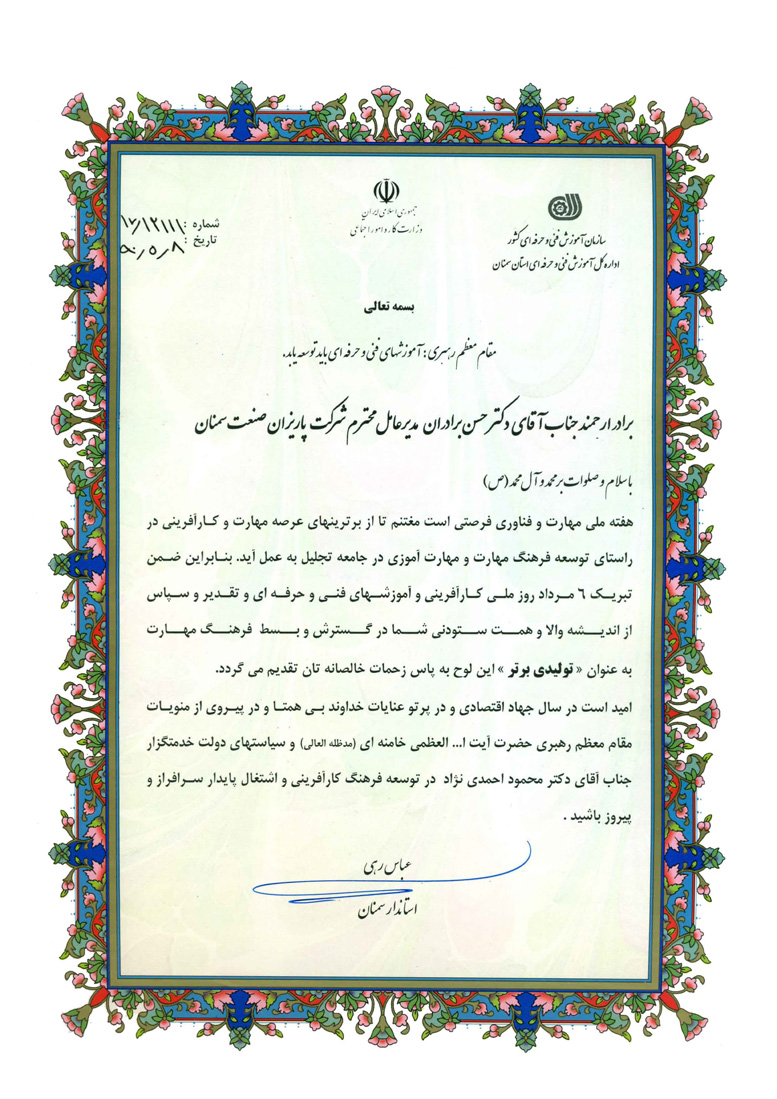 جمهوری اسلامی ایران
وزارت کار و امور اجتماعی
سازمان آموزش فنی و حرفه ای کشور
اداره کل آموزش فنی و حرفه ای استان سمنان
شماره :
تاریخ :
بسمه تعالی
مقام معظم رهبری : آموزشهای فنی و حرفه ای باید توسعه یابد.
برادر ارجمند جناب آقای دکتر حسن برادران مدیرعامل محترم شرکت پاریزان صنعت سمنان
با سلام و صلوات بر محمد و آل محمد (ص)
هفته ملی مهارت و فناوری فرصتی است مغتنم تا از برترینهای عرصه مهارت و کارآفرینی در
راستای توسعه فرهنگ مهارت و مهارت آموزی در جامعه تجلیل به عمل آید. بنابراین ضمن
تبریک ٦ مرداد روز ملی کارآفرینی و آموزشهای فنی و حرفه ای و تقدیر و سپاس
از اندیشه والا و همت ستودنی شما در گسترش و بسط فرهنگ مهارت
به عنوان « تولیدی برتر » این لوح به پاس زحمات خالصانه تان تقدیم می گردد.
امید است در سال جهاد اقتصادی و در پرتو عنایات خداوند بی همتا و در پیروی از منویات
مقام معظم رهبری حضرت آیت ا... العظمی خامنه ای (مدظله العالی) و سیاستهای دولت خدمتگزار
جناب آقای دکتر محمود احمدی نژاد در توسعه فرهنگ کارآفرینی و اشتغال پایدار سرافراز و
پیروز باشید .
عباس رهی
استاندار سمنان